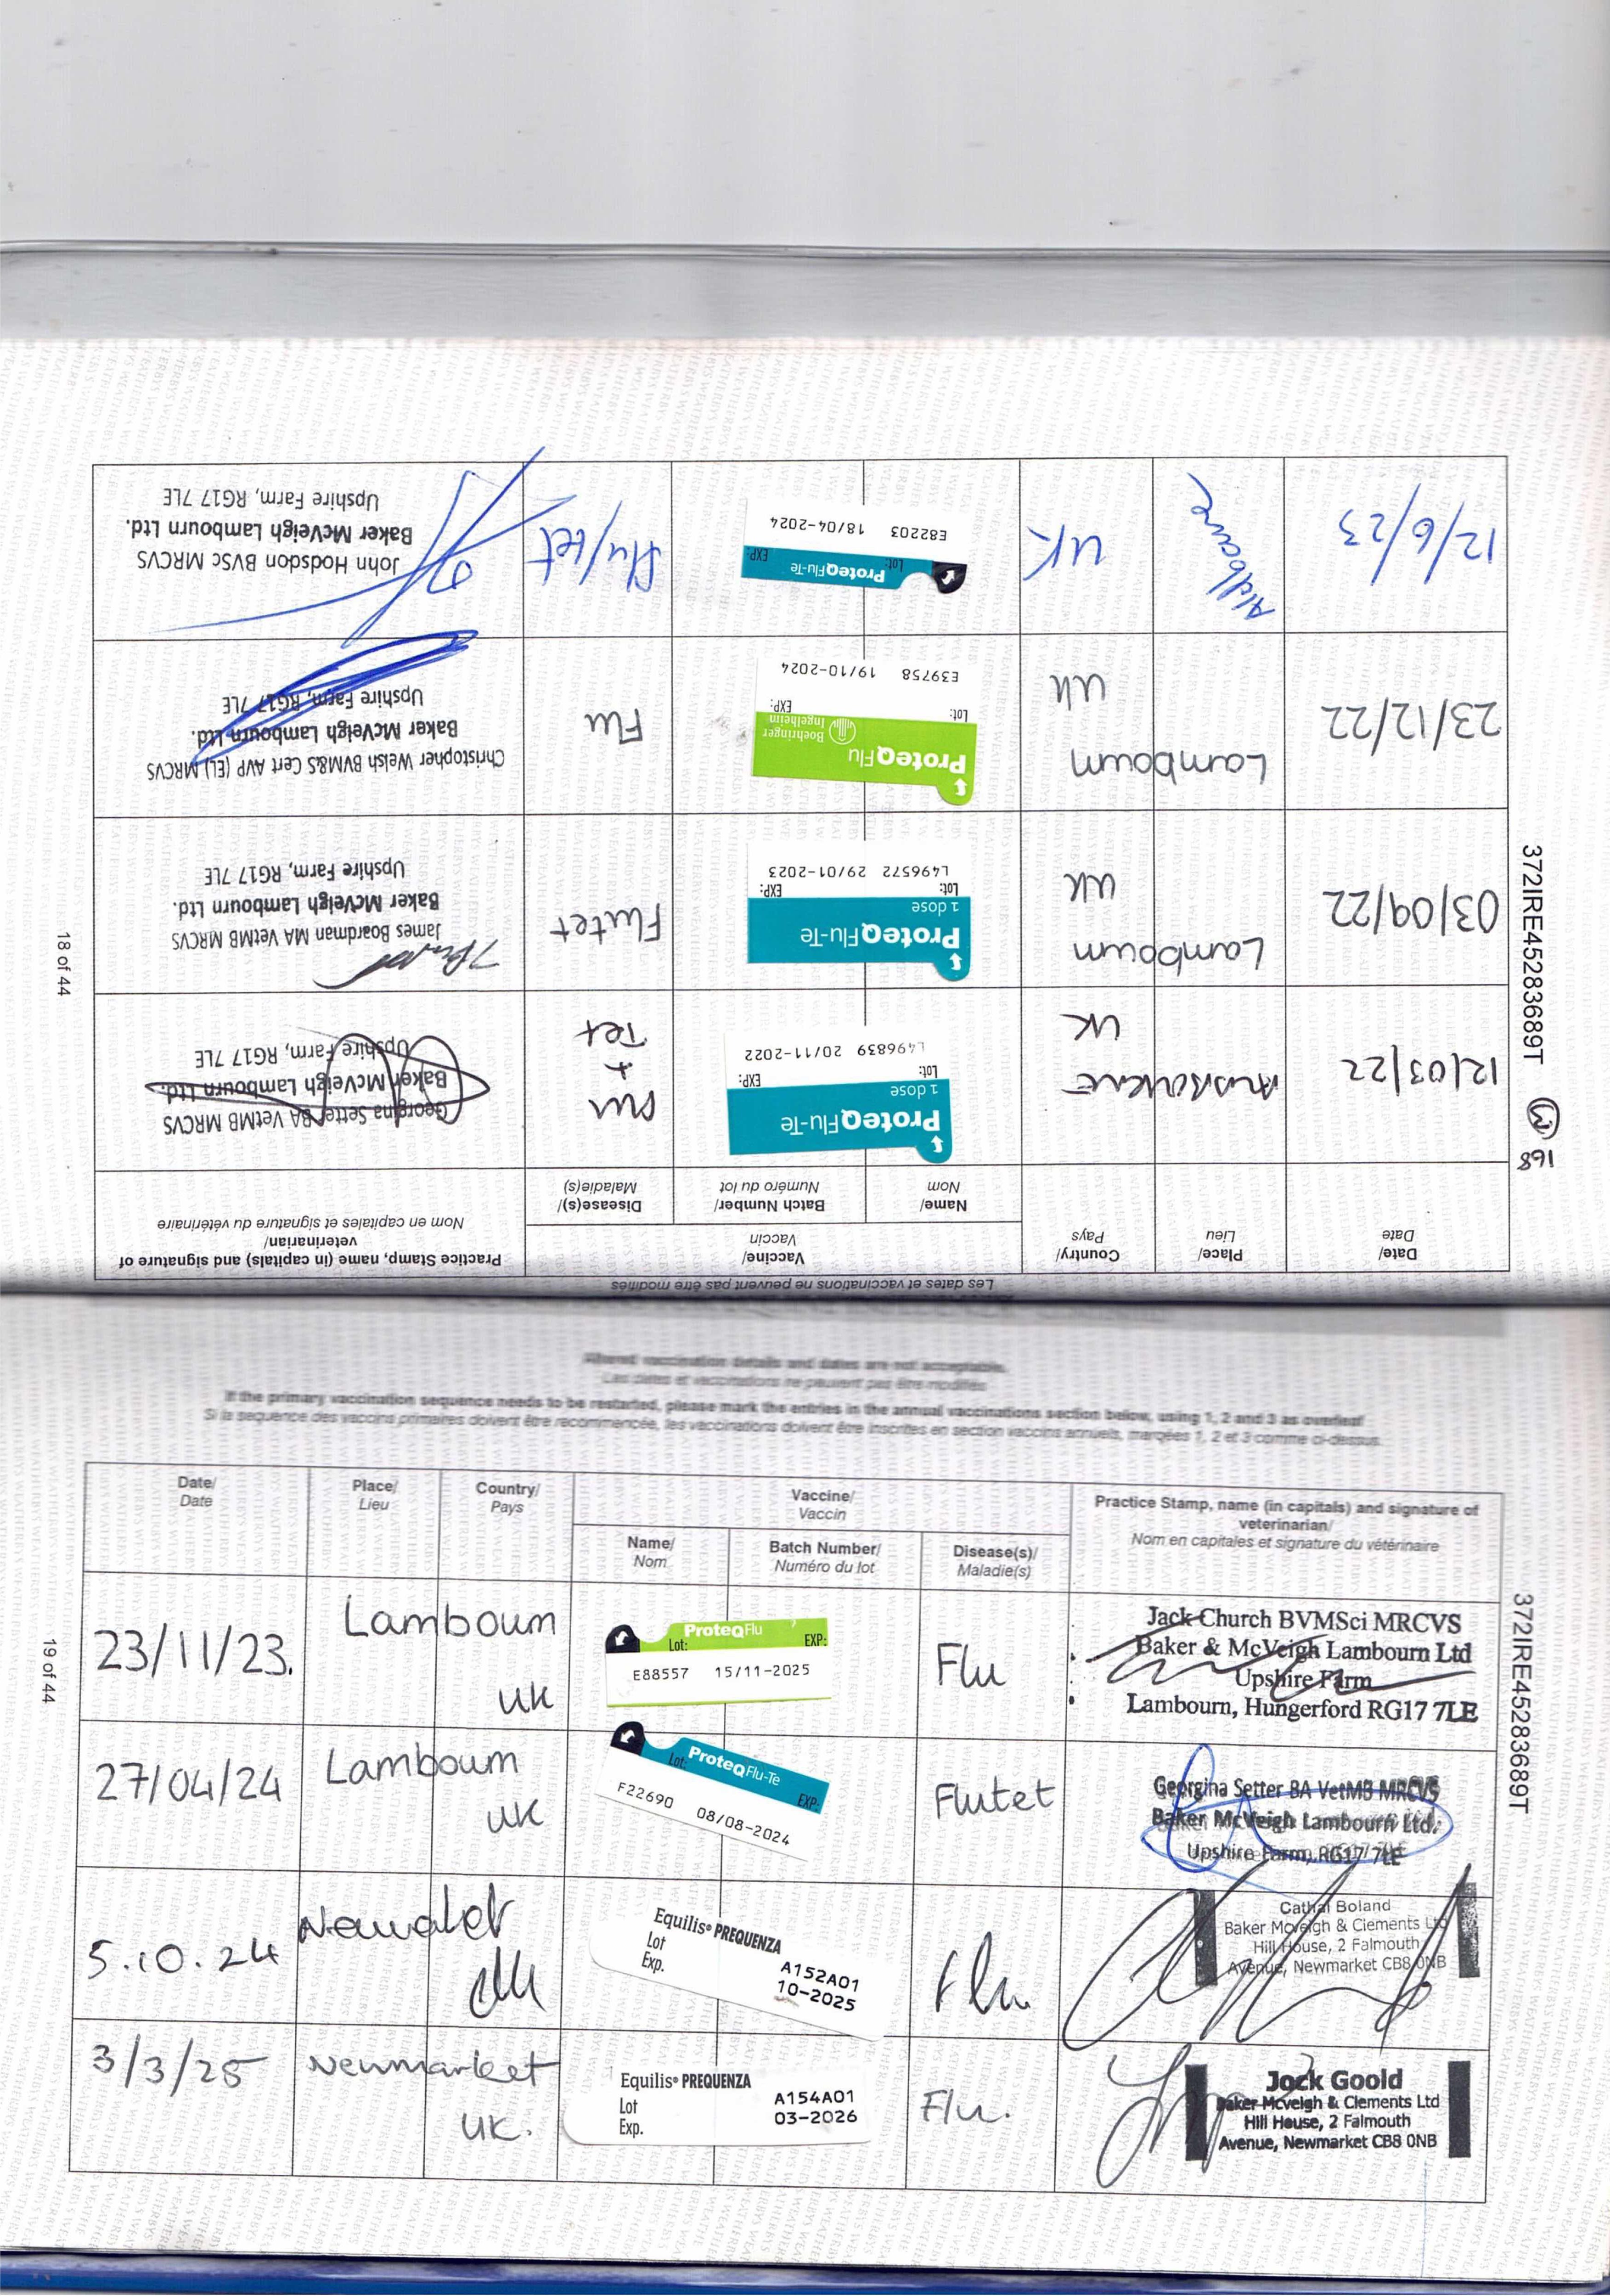 Les dates et vaccinations ne peuvent pas être modifiées
Date/
Date
Place/
Lieu
Country/
Pays
Vaccine/
Vaccin
Name/
Nom
Batch Number/
Numéro du lot
Disease(s)/
Maladie(s)
Practice Stamp, name (in capitals) and signature of
veterinarian/
Nom en capitales et signature du vétérinaire
12/03/22
UK
ProteqFlu-Te
1 dose
Lot: EXP:
L496839 20/11-2022
Flu
+
Tet
Georgina Setter BA VetMB MRCVS
Baker McVeigh Lambourn Ltd.
Upshire Farm, RG17 7LE
03/09/22
Lambourn
UK
ProteqFlu-Te
1 dose
Lot: EXP:
L496572 29/01-2023
Flutet
James Boardman MA VetMB MRCVS
Baker McVeigh Lambourn Ltd.
Upshire Farm, RG17 7LE
23/12/22
Lambourn
UK
ProteqFlu
Boehringer
Ingelheim
Lot: EXP:
E39758 19/10-2024
Flu
Christopher Welsh BVM&S Cert AVP (EL) MRCVS
Baker McVeigh Lambourn Ltd.
Upshire Farm, RG17 7LE
12/6/23
Aldbourne
UK
ProteqFlu-Te
Lot: EXP:
E82203 18/04-2024
flu/tet
John Hodsdon BVSc MRCVS
Baker McVeigh Lambourn Ltd.
Upshire Farm, RG17 7LE
372IRE45283689T
168
18 of 44
Altered vaccination details and dates are not acceptable.
Les dates et vaccinations ne peuvent pas être modifiées
If the primary vaccination sequence needs to be restarted, please mark the entries in the annual vaccinations section below, using 1, 2 and 3 as overleaf
Si la sequence des vaccins primaires doivent être recommencée, les vaccinations doivent être inscrites en section vaccins annuels, marqées 1, 2 et 3 comme ci-dessus.
Date/
Date
Place/
Lieu
Country/
Pays
Vaccine/
Vaccin
Name/
Nom
Batch Number/
Numéro du lot
Disease(s)/
Maladie(s)
Practice Stamp, name (in capitals) and signature of
veterinarian/
Nom en capitales et signature du vétérinaire
23/11/23.
Lambourn
UK
ProteqFlu
Lot: EXP:
E88557 15/11-2025
Flu
Jack Church BVMSci MRCVS
Baker & McVeigh Lambourn Ltd
Upshire Farm
Lambourn, Hungerford RG17 7LE
27/04/24
Lambourn
UK
ProteqFlu-Te
Lot: EXP:
F22690 08/08-2024
Flutet
Georgina Setter BA VetMB MRCVS
Baker McVeigh Lambourn Ltd.
Upshire Farm, RG17 7LE
5.10.24
Equilis® PREQUENZA
Lot A152A01
Exp. 10-2025
Flu
Cathal Boland
Baker Mcveigh & Clements Ltd
Hill House, 2 Falmouth
Avenue, Newmarket CB8 0NB
3/3/25
Newmarket
UK.
Equilis® PREQUENZA
Lot A154A01
Exp. 03-2026
Flu.
Jock Goold
Baker Mcveigh & Clements Ltd
Hill House, 2 Falmouth
Avenue, Newmarket CB8 0NB
372IRE45283689T
19 of 44